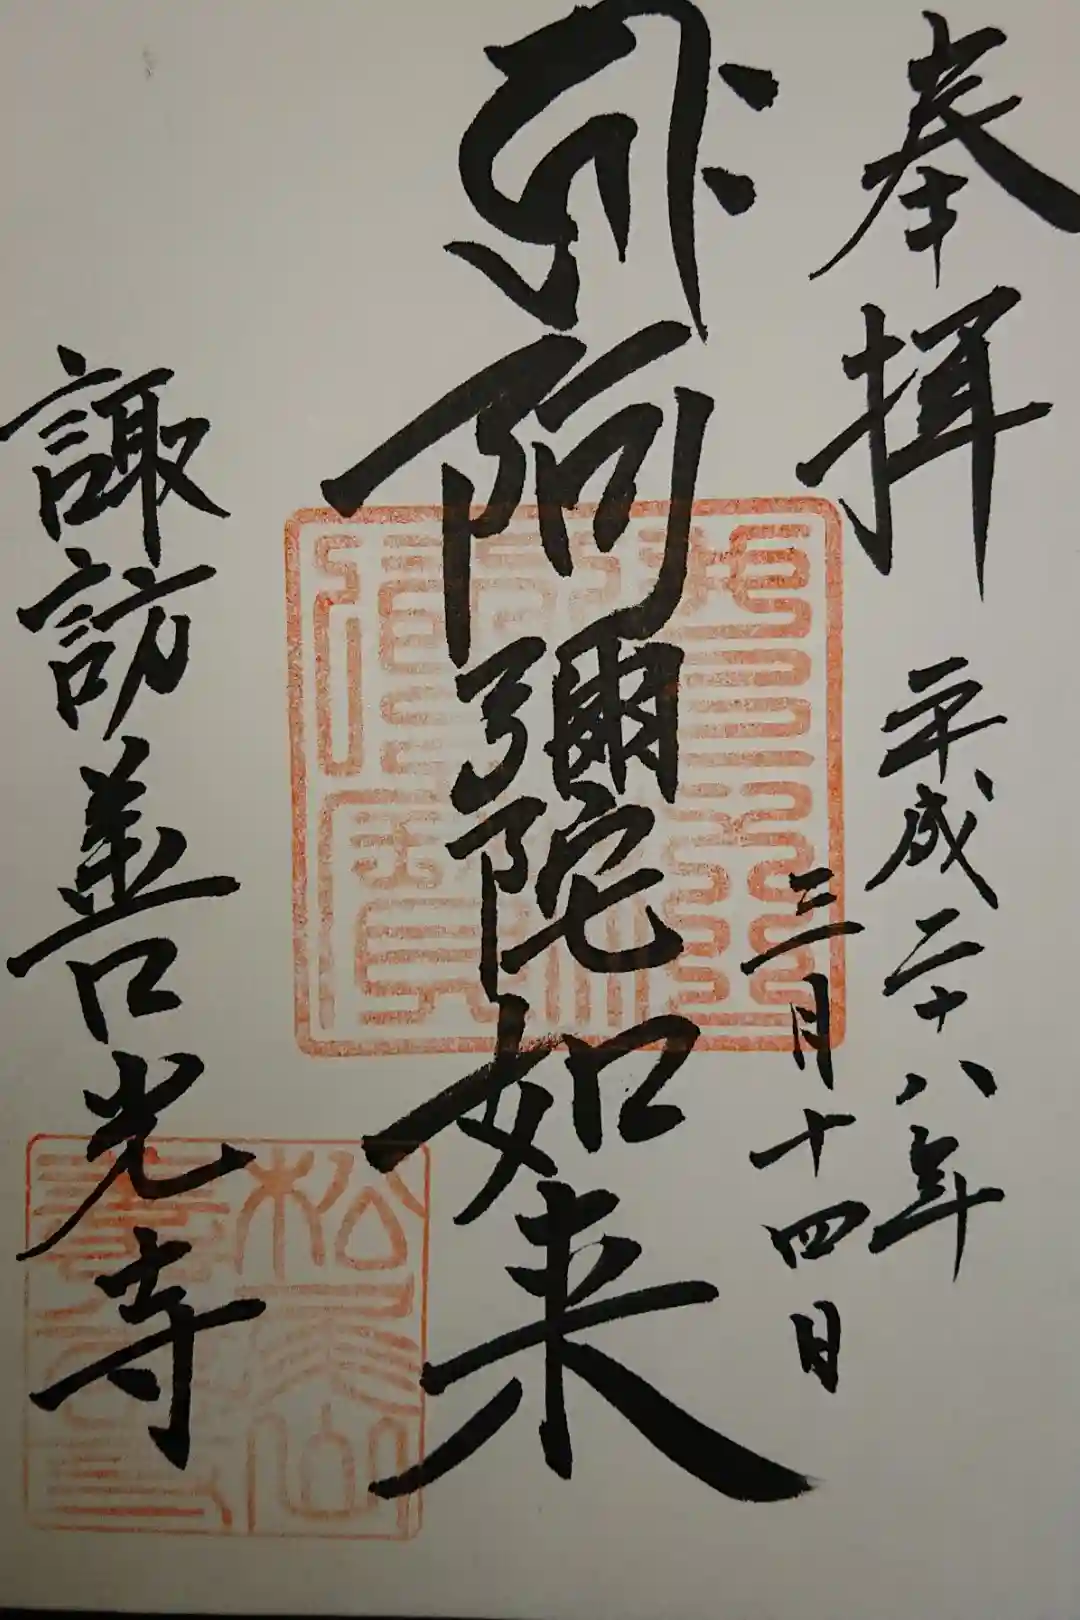 奉拝
平成二十八年
三月十四日
阿彌陀如来
諏訪善光寺